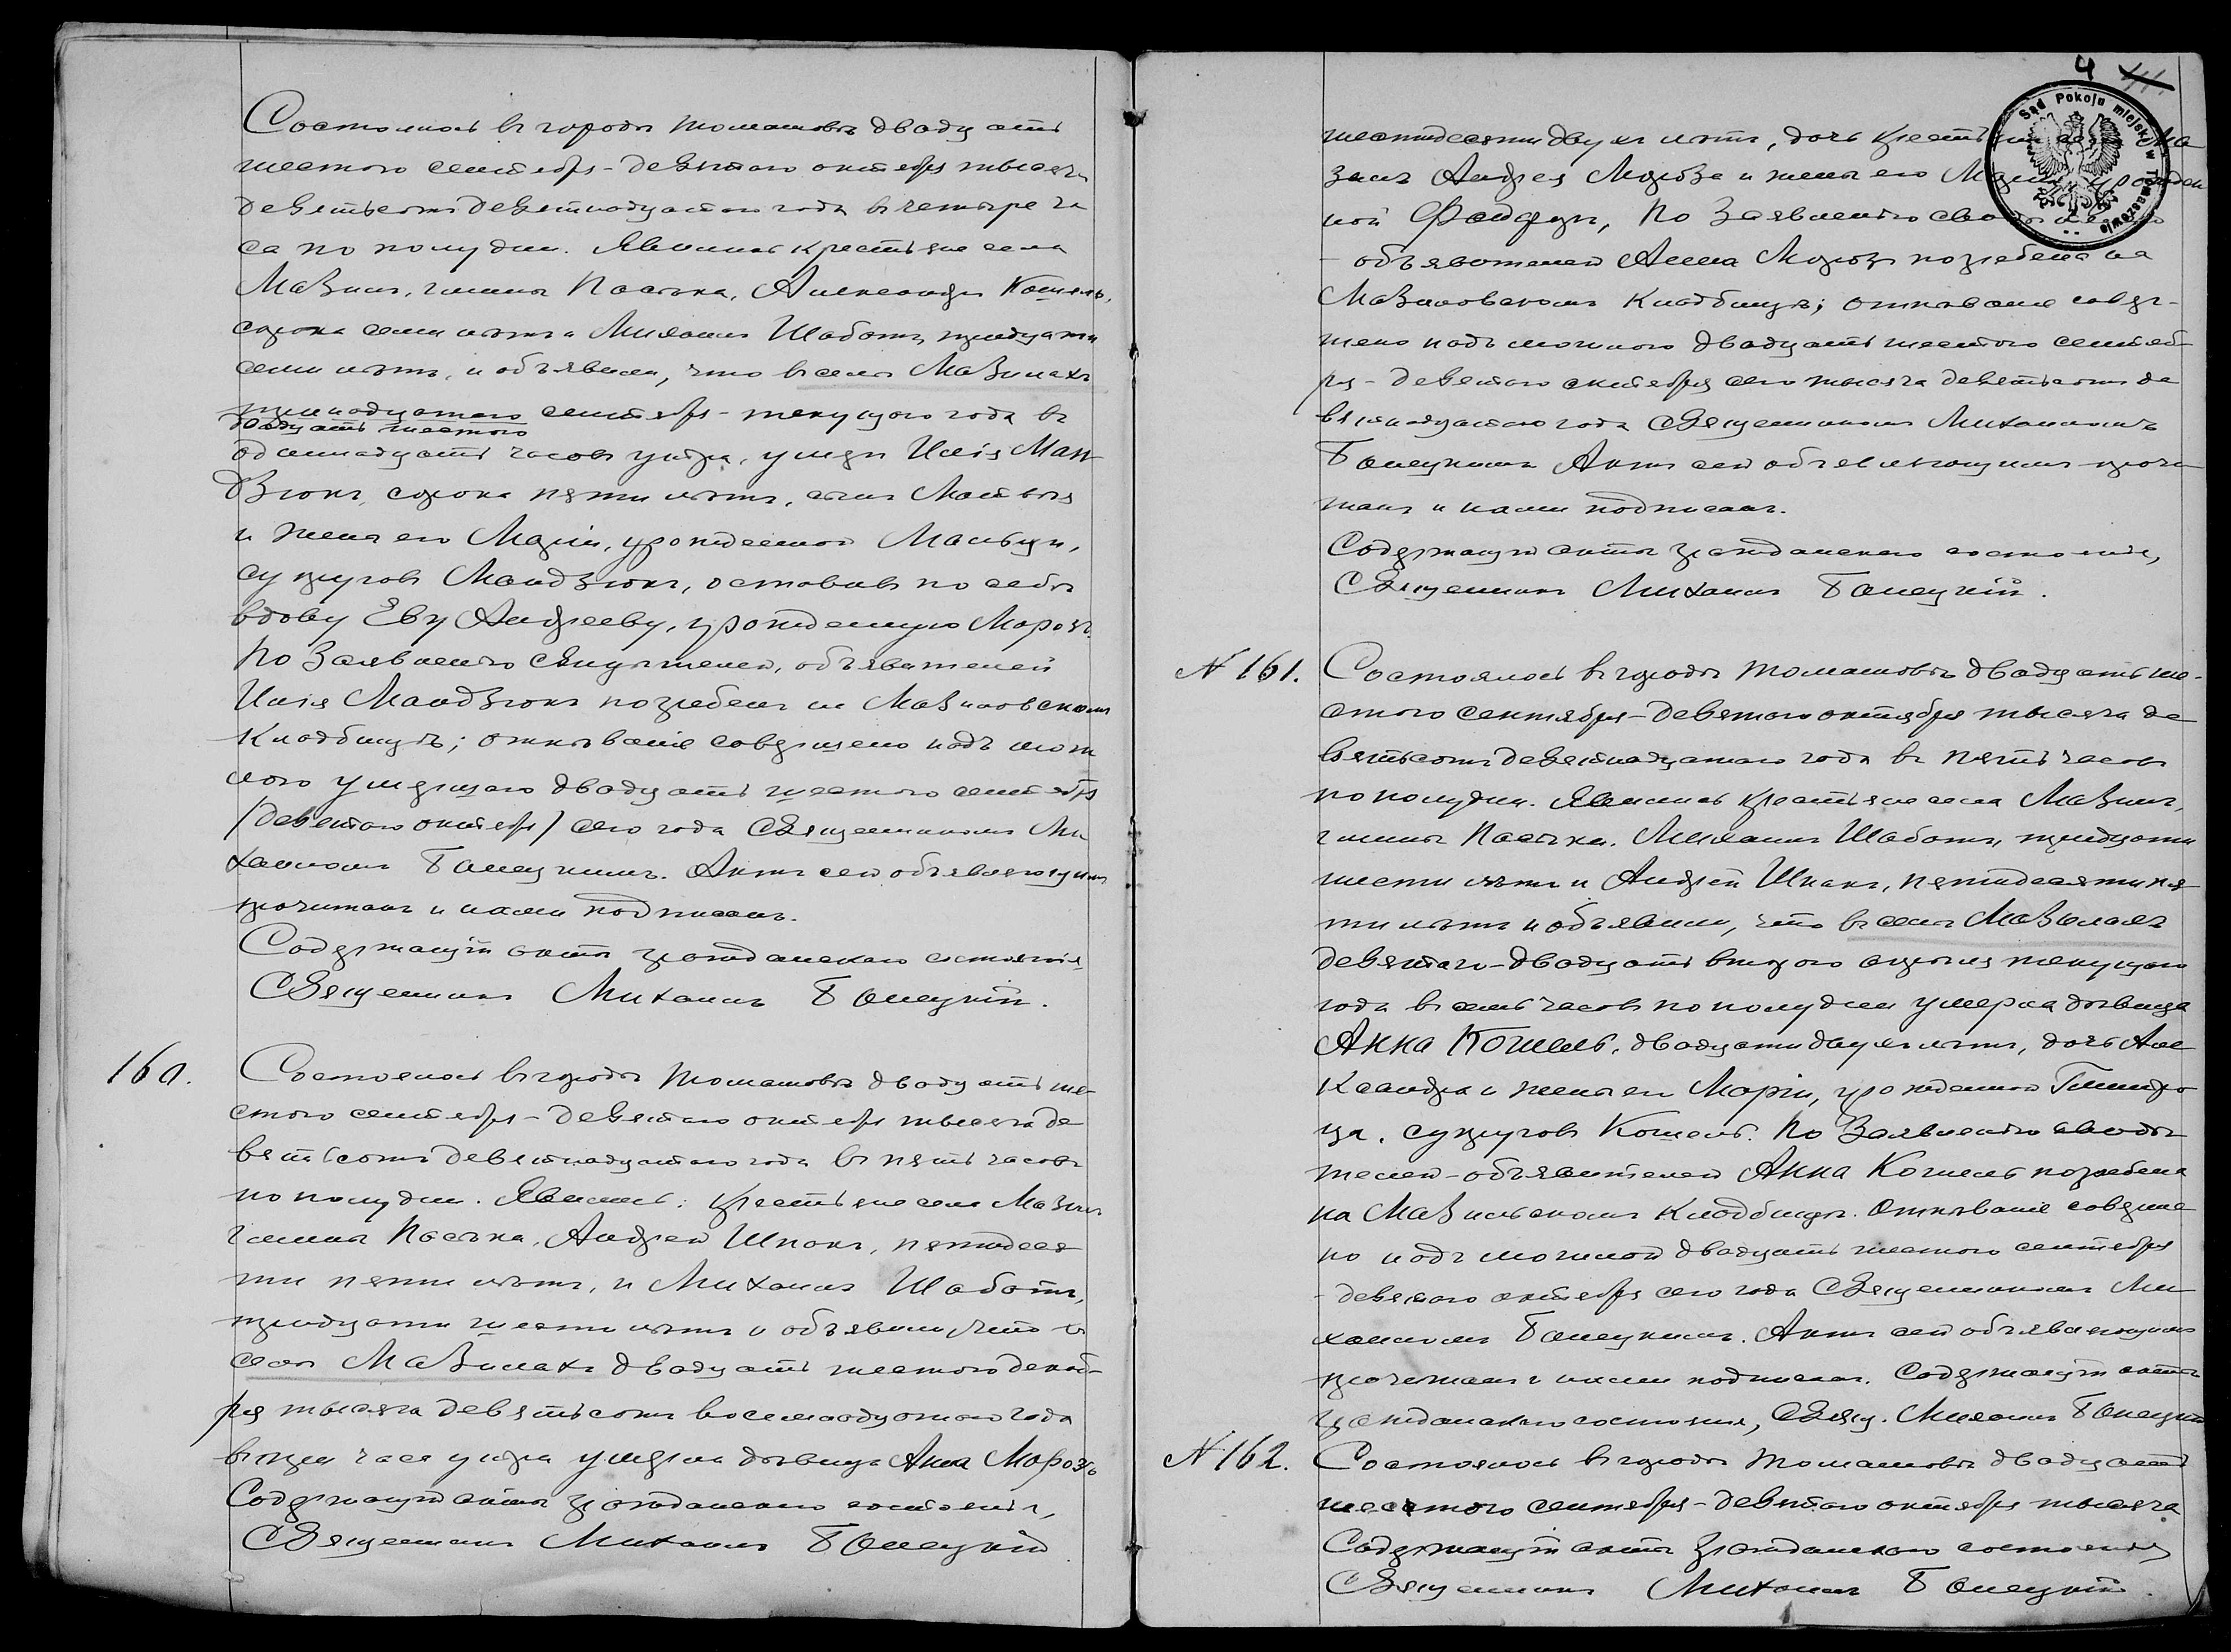 Состоялось въ городѣ Томашовѣ двадцать
шестого сентября - девятаго октября тысяча
девятьсотъ девятнадцатаго года въ четыре ча
са по полудни. Явились крестьяне села
Мазилъ, гмины Пасѣка, Александръ Кошель,
сорока семи лѣтъ и Михаилъ Шаботъ, тридцати
семи лѣтъ, и объявили, что въ селѣ Мазилахъ
тринадцатаго сентября - текущаго года въ
двадцать шестого
одиннадцать часовъ утра, умеръ Илія Ман
дзюкъ, сорока пяти лѣтъ, сынъ Матвѣя
и жены его Маріи, урожденной
супруговъ Мандзюкъ, оставивъ по себѣ
вдову Еву Андрееву, урожденную Морозъ.
По заявленію свидѣтелей, объявителей
Илія Мандзюкъ погребенъ на Мазиловскомъ
кладбищѣ; отпѣваніе совершено надъ моги
лою умершаго двадцать шестого сентября
/девятаго октября/ сего года Священникомъ Ми
хаиломъ Банецкимъ. Актъ сей объявляющимъ
прочитанъ и нами подписанъ.
Содержащій акты гражданскаго состоянія,
Священникъ Михаилъ Банецкій.
160. Состоялось въ городѣ Томашовѣ двадцать ше-
стого сентября - девятаго октября тысяча де
вятьсотъ девятнадцатаго года въ пять часовъ
по полудни. Явились: крестьяне села Мазилъ
гмины Пасѣка, Андрей Шпакъ, пятидеся
ти пяти лѣтъ, и Михаилъ Шаботъ,
тридцати шести лѣтъ и объявили, что въ
селѣ Мазилахъ двадцать шестого декаб-
ря тысяча девятьсотъ восемнадцатаго года
въ три часа утра умерла дѣвица Анна Морозъ
Содержащій акты гражданскаго состоянія,
Священникъ Михаилъ Банецкій
4
Sąd Pokoju miejski w Tomaszowie
шестидесяти двухъ лѣтъ, дочь крестьянъ села Ма
зилъ Андрея Морозъ и жены его Маріи, урожден
ной По заявленію
- объявителей Анна Морозъ погребена на
Мазиловскомъ кладбищѣ; отпѣваніе совер-
шено надъ могилою двадцать шестого сентяб-
ря - девятаго октября сего тысяча девятьсотъ де
вятнадцатаго года Священникомъ Михаиломъ
Банецкимъ Актъ сей объявляющимъ прочи
танъ и нами подписанъ.
Содержащій акты гражданскаго состоянія,
Священникъ Михаилъ Банецкій.
N 161. Состоялось въ городѣ Томашовѣ двадцать ше-
стого сентября - девятаго октября тысяча де
вятьсотъ девятнадцатаго года въ пять часовъ
по полудни. Явились крестьяне села Мазилъ,
гмины Пасѣка. Михаилъ Шаботъ, тридцати
шести лѣтъ и Андрей Шпакъ, пятидесяти пя
ти лѣтъ и объявили, что въ селѣ Мазилахъ
девятаго - двадцать второго апрѣля текущаго
года въ семь часовъ по полудни умерла дѣвица
Анна Кошель, двадцати двухъ лѣтъ, дочь Але
ксандра и жены его Маріи, урожденной
супруговъ Кошель. По заявленію свидѣ
телей - объявителей Анна Кошель погребена
на Мазильскомъ кладбищѣ. Отпѣваніе соверше
но надъ могилой двадцать шестого сентября
- девятаго октября сего года Священникомъ Ми
хаиломъ Банецкимъ. Актъ сей объявляющимъ
прочитанъ и нами подписанъ. Содержащій акты
гражданскаго состоянія, Свящ. Михаилъ Банецкій
N 162. Состоялось въ городѣ Томашовѣ двадцать
шестого сентября - девятаго октября тысяча
Содержащій акты гражданскаго состоянія
Священникъ Михаилъ Банецкій.